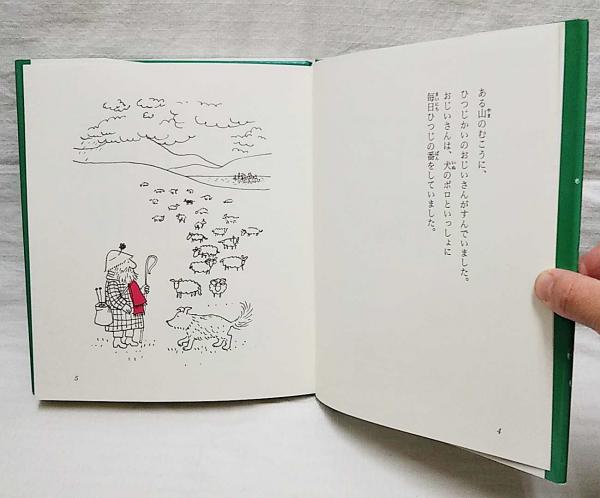 ある山のむこうに、
ひつじかいのおじいさんがすんでいました。
おじいさんは、犬のポロといっしょに
毎日ひつじの番をしていました。
4
5